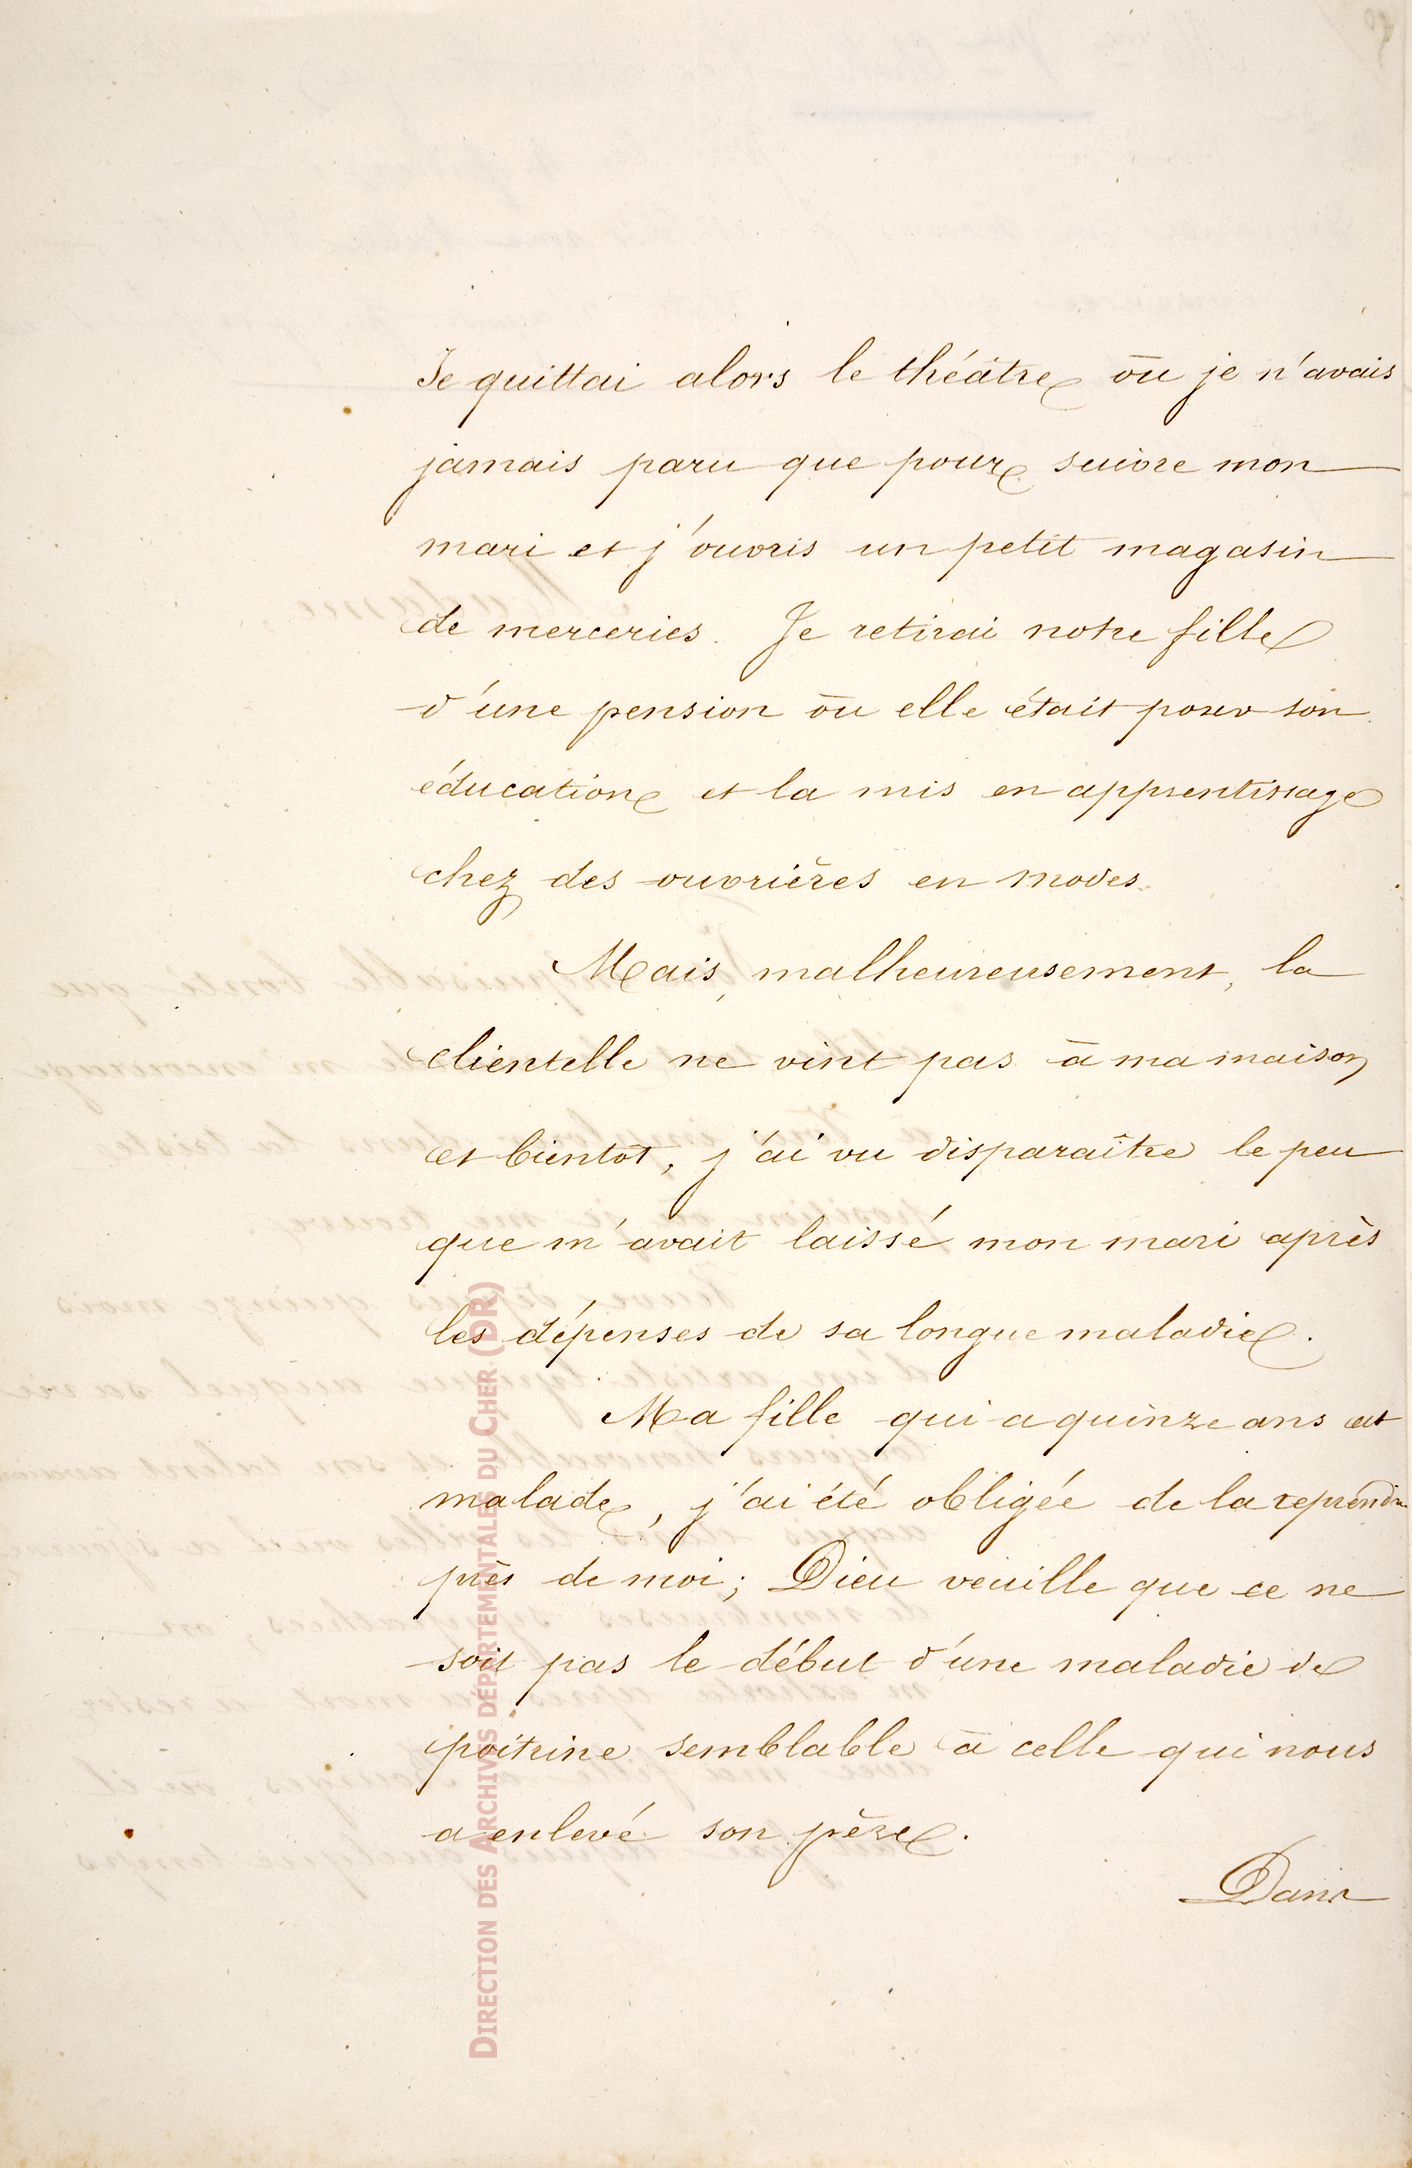 Je quittai alors le théâtre où je n'avais
jamais paru que pour suivre mon
mari et j'ouvris un petit magasin
de merceries. Je retirai notre fille
d'une pension où elle était pour son
éducation et la mis en apprentissage
chez des ouvrières en modes.
Mais, malheureusement, la
clientelle ne vint pas à ma maison
et bientôt, j'ai vu disparaître le peu
que m'avait laissé mon mari après
les dépenses de sa longue maladie.
Ma fille qui a quinze ans est
malade, j'ai été obligée de la reprendre
près de moi; Dieu veuille que ce ne
soit pas le début d'une maladie de
poitrine semblable à celle qui nous
a enlevé son père.
Dans
DIRECTION DES ARCHIVES DÉPARTEMENTALES DU CHER (DR)